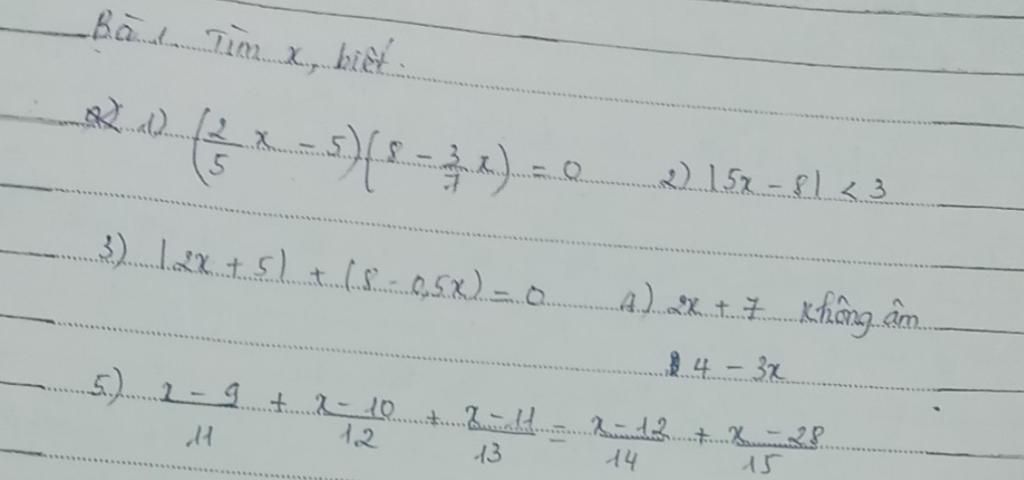 Bài 1. Tìm x, biết.
1) (2/5 x - 5)(8 - 3/7 x) = 0 2) |5x - 8| < 3
3) |2x + 5| + (8 - 0,5x) = 0 4) 2x + 7 không âm
4 - 3x
5) x - 9/11 + x - 10/12 + x - 11/13 = x - 12/14 + x - 28/15